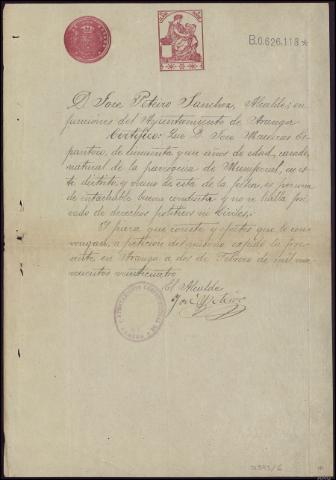 B.0.626.118 *
D. José Peteiro Sanchez, Alcalde, en
funciones del Ayuntamiento de Aranga
Certifico: Que D. José Maceiras
de cincuenta y un años de edad, casado,
natural de la parroquia de Muniferral, en es-
te distrito y vecino de esta de la fecha, es persona
de intachable buena conducta y no se halla pri-
vado de derechos politicos ni civiles.
Y para que conste y efectos que le con-
vengan, a petición del mismo expido la pre-
sente en Aranga a dos de Febrero de mil no-
vecientos veinticuatro.
El Alcalde
José Peteiro